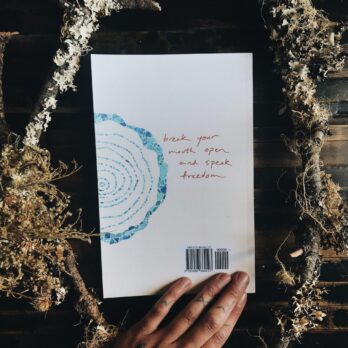 break your
mouth open
and speak
freedom